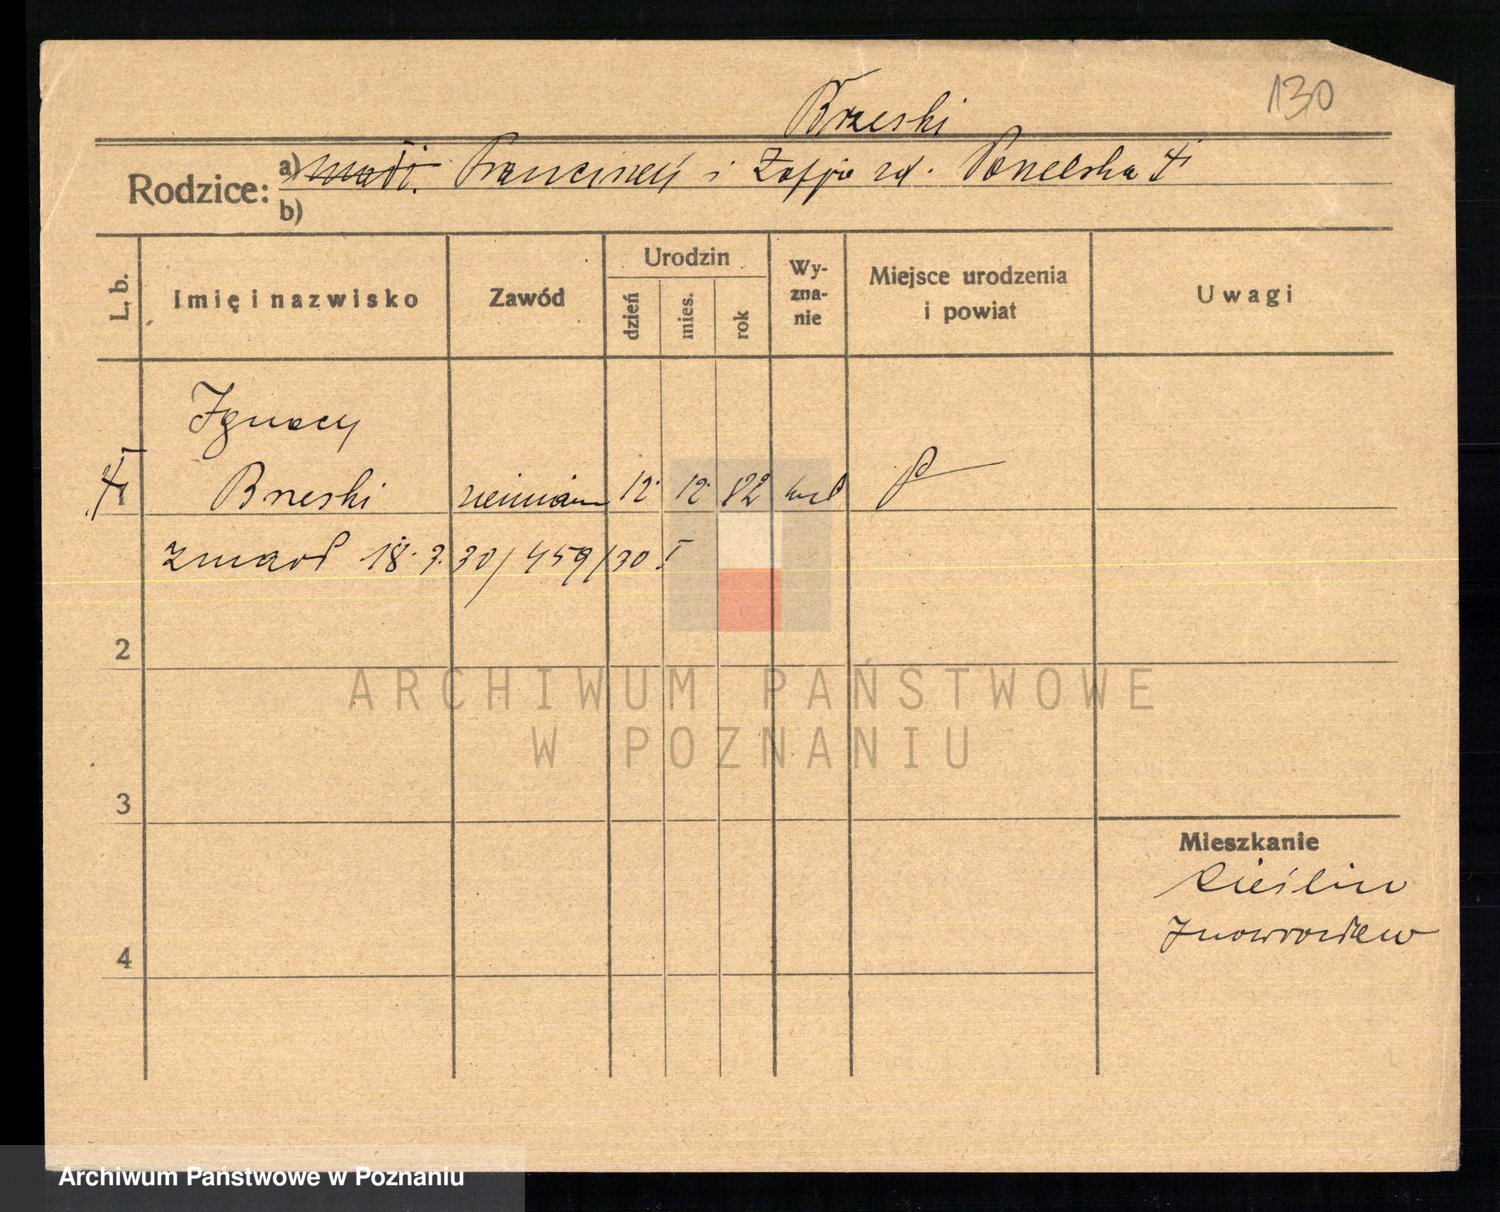 130
Brzeski
Rodzice: a) Franciszek i Zofja
b)
L. b.
Imię i nazwisko
Zawód
Urodzin
dzień
mies.
rok
Wy-
zna-
nie
Miejsce urodzenia
i powiat
Uwagi
Ignacy
1 Brzeski ziemianin 12. 12. 82
zmarł 18. 3. 30/459/30 I
2
3
4
Mieszkanie
Cieślin
Inowrocław
ARCHIWUM PAŃSTWOWE
W POZNANIU
Archiwum Państwowe w Poznaniu